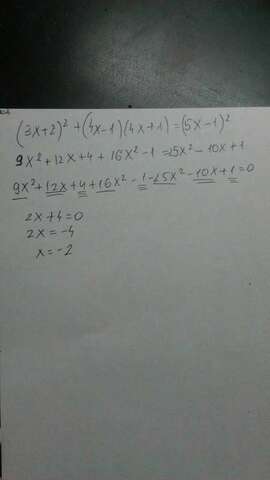 (3x+2)² + (4x-1)(4x+1) = (5x-1)²
9x² + 12x + 4 + 16x² - 1 = 25x² - 10x + 1
9x² + 12x + 4 + 16x² - 1 - 25x² - 10x + 1 = 0
2x + 4 = 0
2x = -4
x = -2